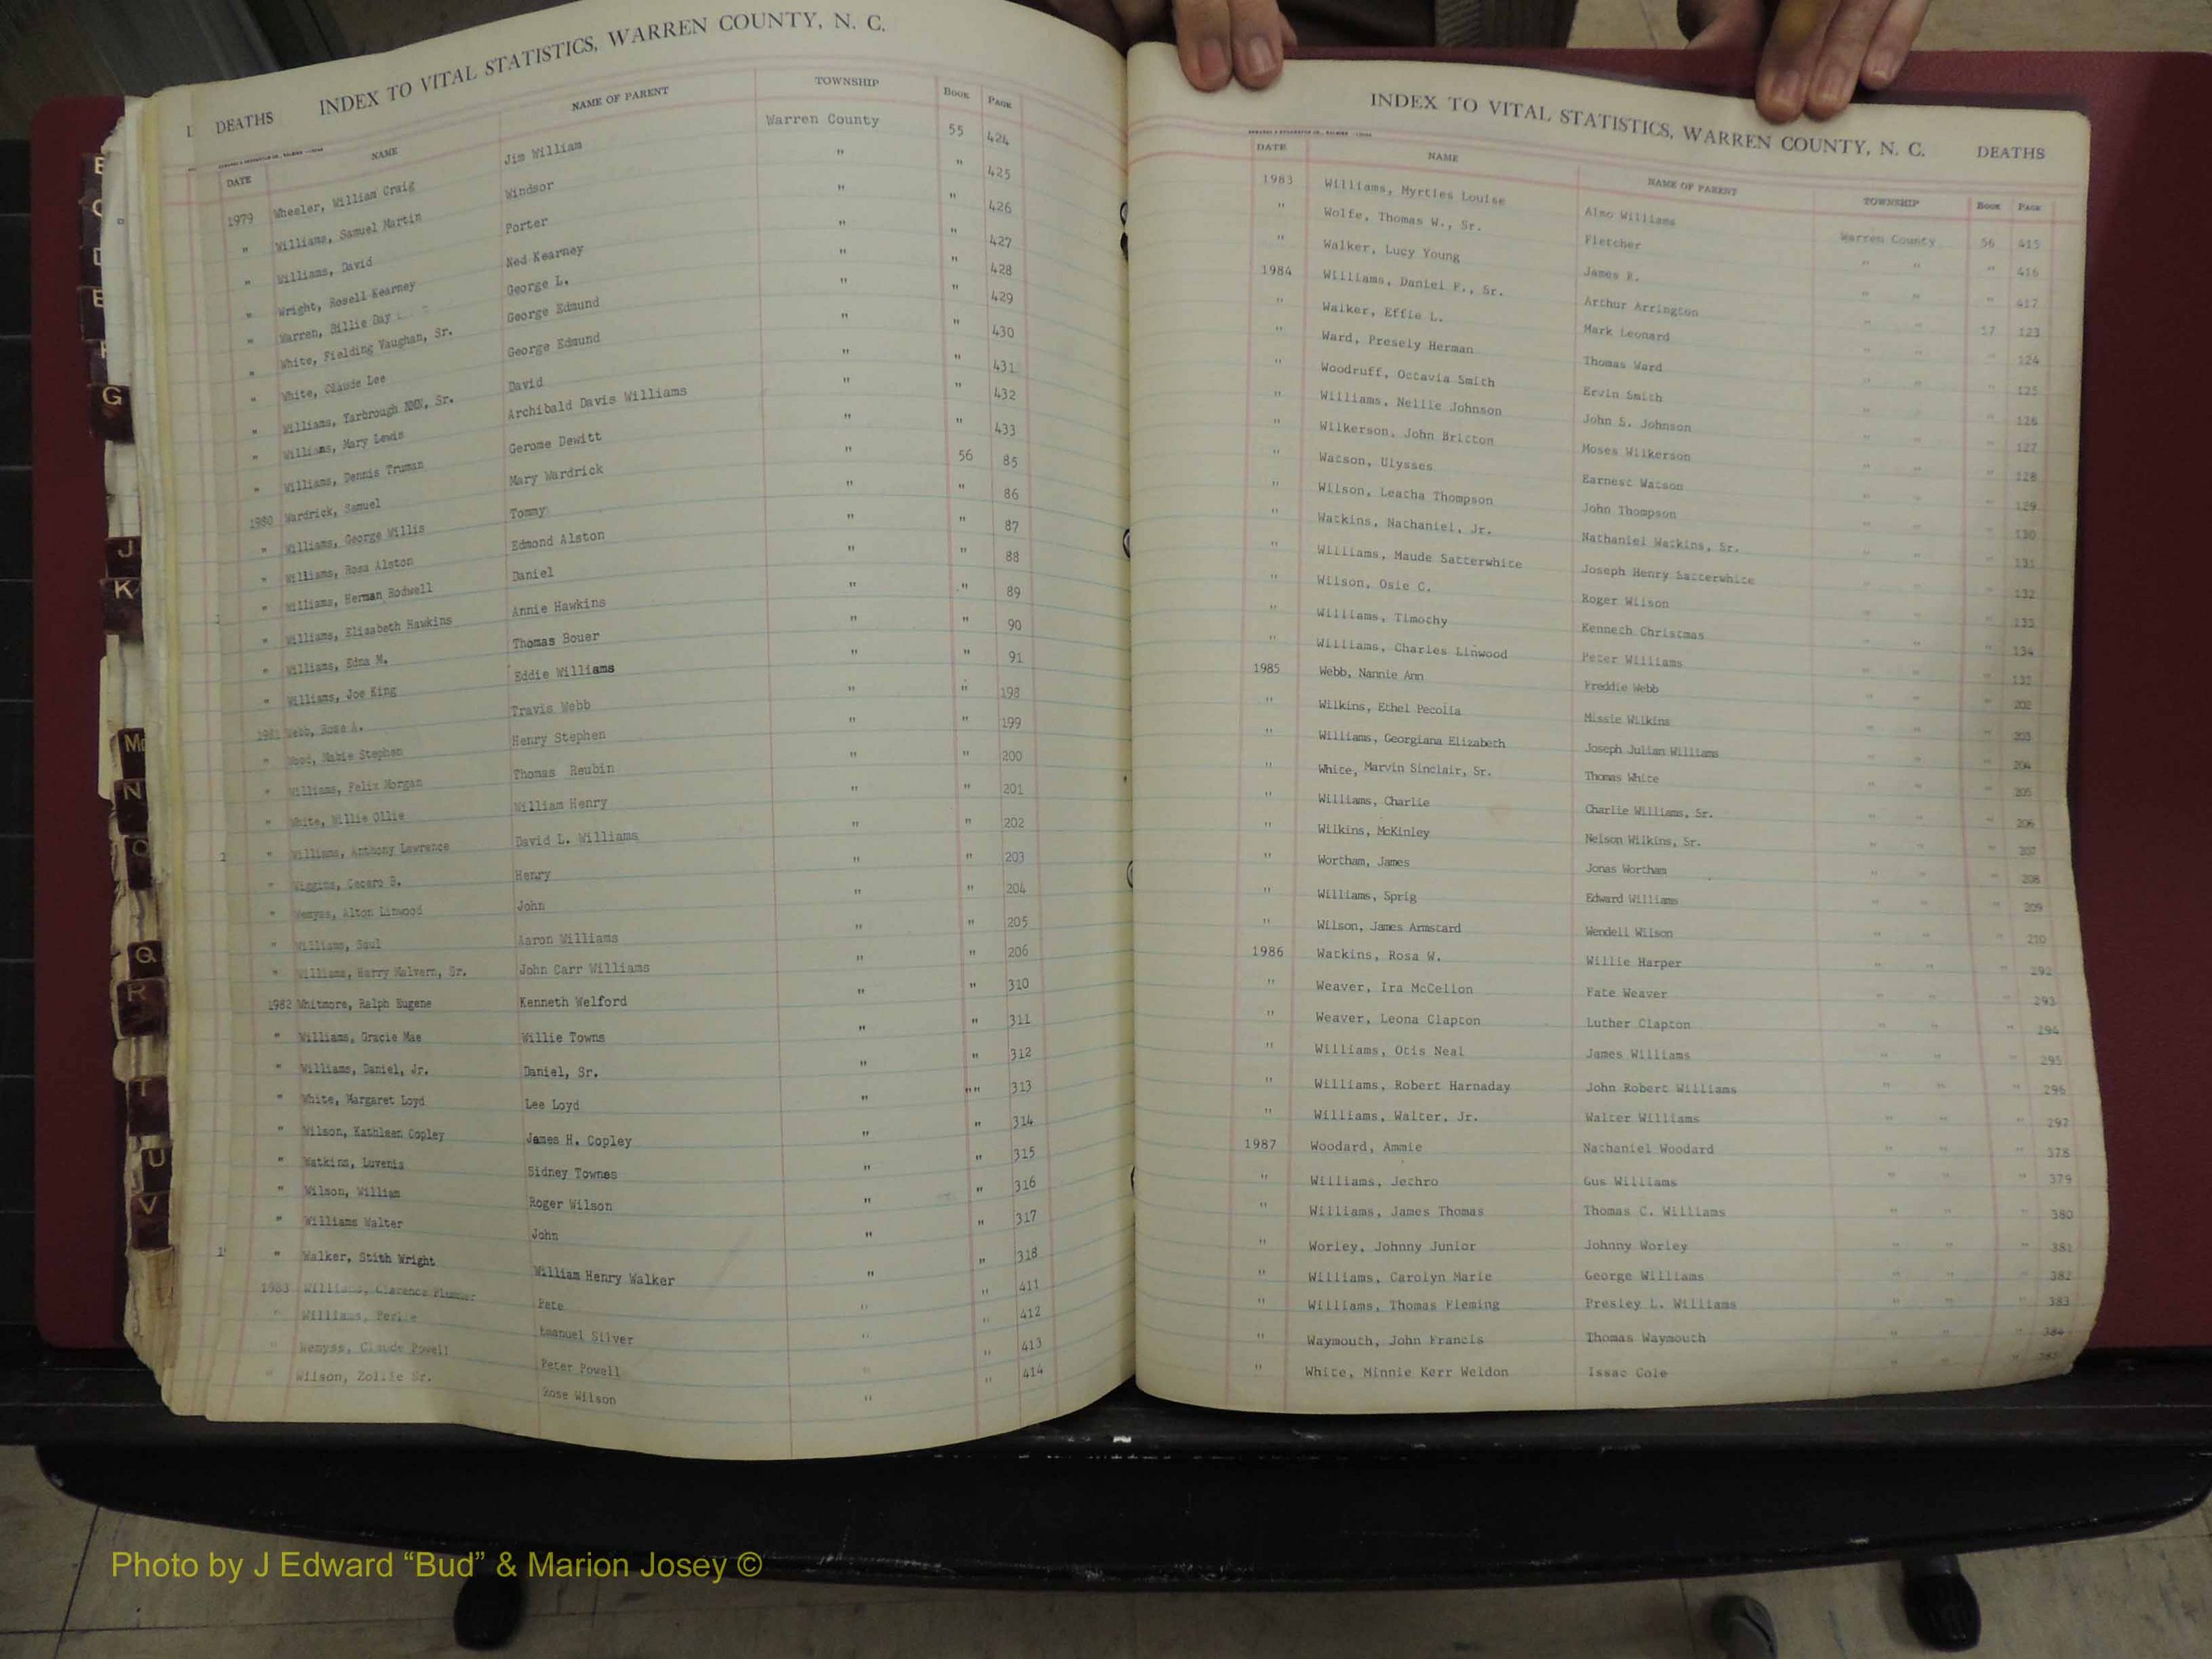 INDEX TO VITAL STATISTICS, WARREN COUNTY, N. C.
DEATHS
DATE NAME NAME OF PARENT TOWNSHIP BOOK PAGE
1979 Wheeler, William Craig Jim William Warren County 55 424
" Williams, Samuel Martin Windsor " " 425
" Williams, David Porter " " 426
" Wright, Rosell Kearney Ned Kearney " " 427
" Warren, Billie Day George L. " " 428
" White, Fielding Vaughan, Sr. George Edmund " " 429
" White, Claude Lee George Edmund " " 430
" Williams, Yarbrough NMN, Sr. David " " 431
" Williams, Mary Lewis Archibald Davis Williams " " 432
" Williams, Dennis Truman Gerome Dewitt " " 433
1980 Wardrick, Samuel Mary Wardrick " 56 85
" Williams, George Willis Tommy " " 86
" Williams, Rosa Alston Edmond Alston " " 87
" Williams, Herman Rodwell Daniel " " 88
" Williams, Elizabeth Hawkins Annie Hawkins " " 89
" Williams, Edna M. Thomas Bouer " " 90
" Williams, Joe King Eddie Williams " " 91
1981 Webb, Rosa A. Travis Webb " " 198
" Wood, Mabie Stephen Henry Stephen " " 199
" Williams, Felix Morgan Thomas Reubin " " 200
" White, Willie Ollie William Henry " " 201
" Williams, Anthony Lawrence David L. Williams " " 202
" Wiggins, Cecero B. Henry " " 203
" Wemyss, Alton Linwood John " " 204
" Williams, Saul Aaron Williams " " 205
" Williams, Harry Malvern, Sr. John Carr Williams " " 206
1982 Whitmore, Ralph Eugene Kenneth Welford " " 310
" Williams, Gracie Mae Willie Towns " " 311
" Williams, Daniel, Jr. Daniel, Sr. " " 312
" White, Margaret Loyd Lee Loyd " "" 313
" Wilson, Kathleen Copley James H. Copley " " 314
" Watkins, Luvenia Sidney Townes " " 315
" Wilson, William Roger Wilson " " 316
" Williams Walter John " " 317
" Walker, Stith Wright William Henry Walker " " 318
1983 Williams, Clarence Plummer Pete " " 411
" Williams, Perlie Emanuel Silver " " 412
" Wemyss, Claude Powell Peter Powell " " 413
" Wilson, Zollie Sr. Rose Wilson " " 414
INDEX TO VITAL STATISTICS, WARREN COUNTY, N. C. DEATHS
DATE NAME NAME OF PARENT TOWNSHIP BOOK PAGE
1983 Williams, Myrties Louise Almo Williams Warren County 56 415
" Wolfe, Thomas W., Sr. Fletcher " " " 416
" Walker, Lucy Young James E. " " " 417
1984 Williams, Daniel F., Sr. Arthur Arrington " " 57 123
" Walker, Effie L. Mark Leonard " " " 124
" Ward, Presely Herman Thomas Ward " " " 125
" Woodruff, Octavia Smith Ervin Smith " " " 126
" Williams, Nellie Johnson John S. Johnson " " " 127
" Wilkerson, John Britton Moses Wilkerson " " " 128
" Watson, Ulysses Earnest Watson " " " 129
" Wilson, Leatha Thompson John Thompson " " " 130
" Watkins, Nathaniel, Jr. Nathaniel Watkins, Sr. " " " 131
" Williams, Maude Satterwhite Joseph Henry Satterwhite " " " 132
" Wilson, Osie C. Roger Wilson " " " 133
" Williams, Timothy Kenneth Christmas " " " 134
" Williams, Charles Linwood Peter Williams " " " 135
1985 Webb, Nannie Ann Freddie Webb " " " 202
" Wilkins, Ethel Pecolia Missie Wilkins " " " 203
" Williams, Georgiana Elizabeth Joseph Julian Williams " " " 204
" White, Marvin Sinclair, Sr. Thomas White " " " 205
" Williams, Charlie Charlie Williams, Sr. " " " 206
" Wilkins, McKinley Nelson Wilkins, Sr. " " " 207
" Wortham, James Jonas Wortham " " " 208
" Williams, Sprig Edward Williams " " " 209
" Wilson, James Armstard Wendell Wilson " " " 210
1986 Watkins, Rosa W. Willie Harper " " " 292
" Weaver, Ira McCellon Fate Weaver " " " 293
" Weaver, Leona Clapton Luther Clapton " " " 294
" Williams, Otis Neal James Williams " " " 295
" Williams, Robert Harnaday John Robert Williams " " " 296
" Williams, Walter, Jr. Walter Williams " " " 297
1987 Woodard, Ammie Nathaniel Woodard " " " 378
" Williams, Jethro Gus Williams " " " 379
" Williams, James Thomas Thomas C. Williams " " " 380
" Worley, Johnny Junior Johnny Worley " " " 381
" Williams, Carolyn Marie George Williams " " " 382
" Williams, Thomas Fleming Presley L. Williams " " " 383
" Waymouth, John Francis Thomas Waymouth " " " 384
" White, Minnie Kerr Weldon Issac Cole " " " 385
G
J
K
Mc
N
O
Q
R
T
U
V
Photo by J Edward “Bud” & Marion Josey ©